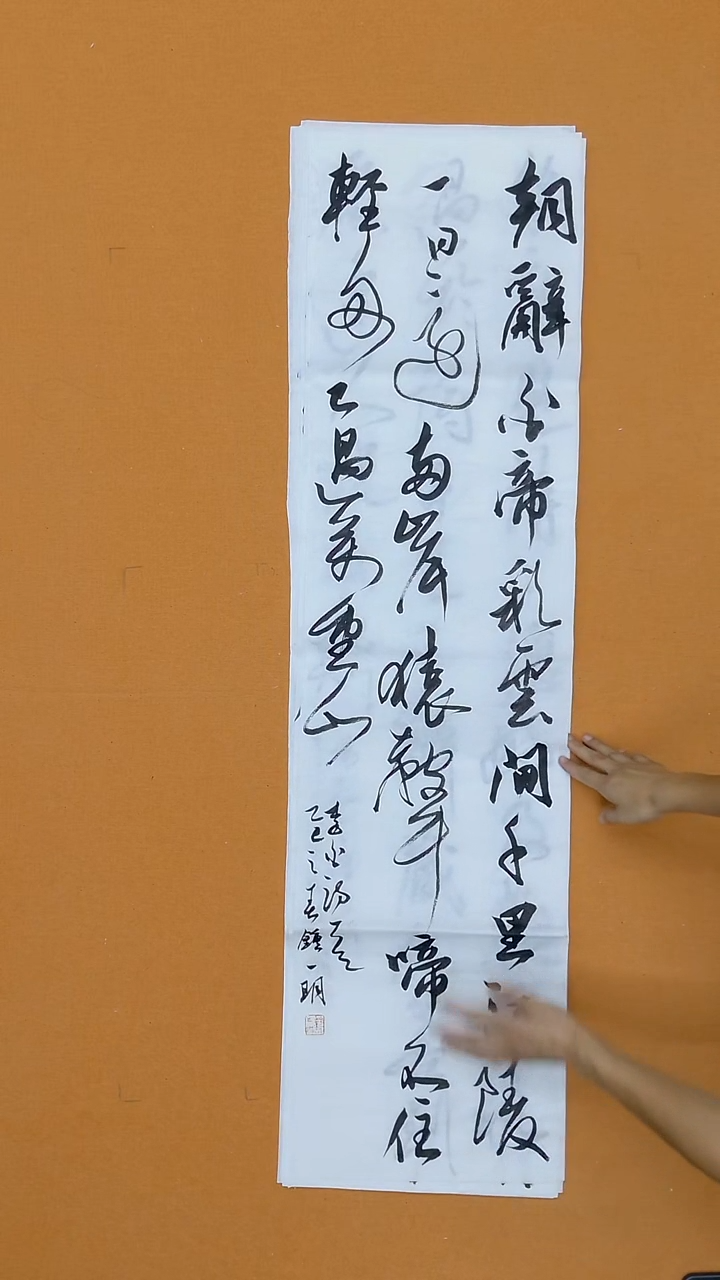 朝辭白帝彩雲間千里江陵
一日還兩岸猿聲啼不住
輕舟已過萬重山
李白詩一首
乙巳之春鍾一明